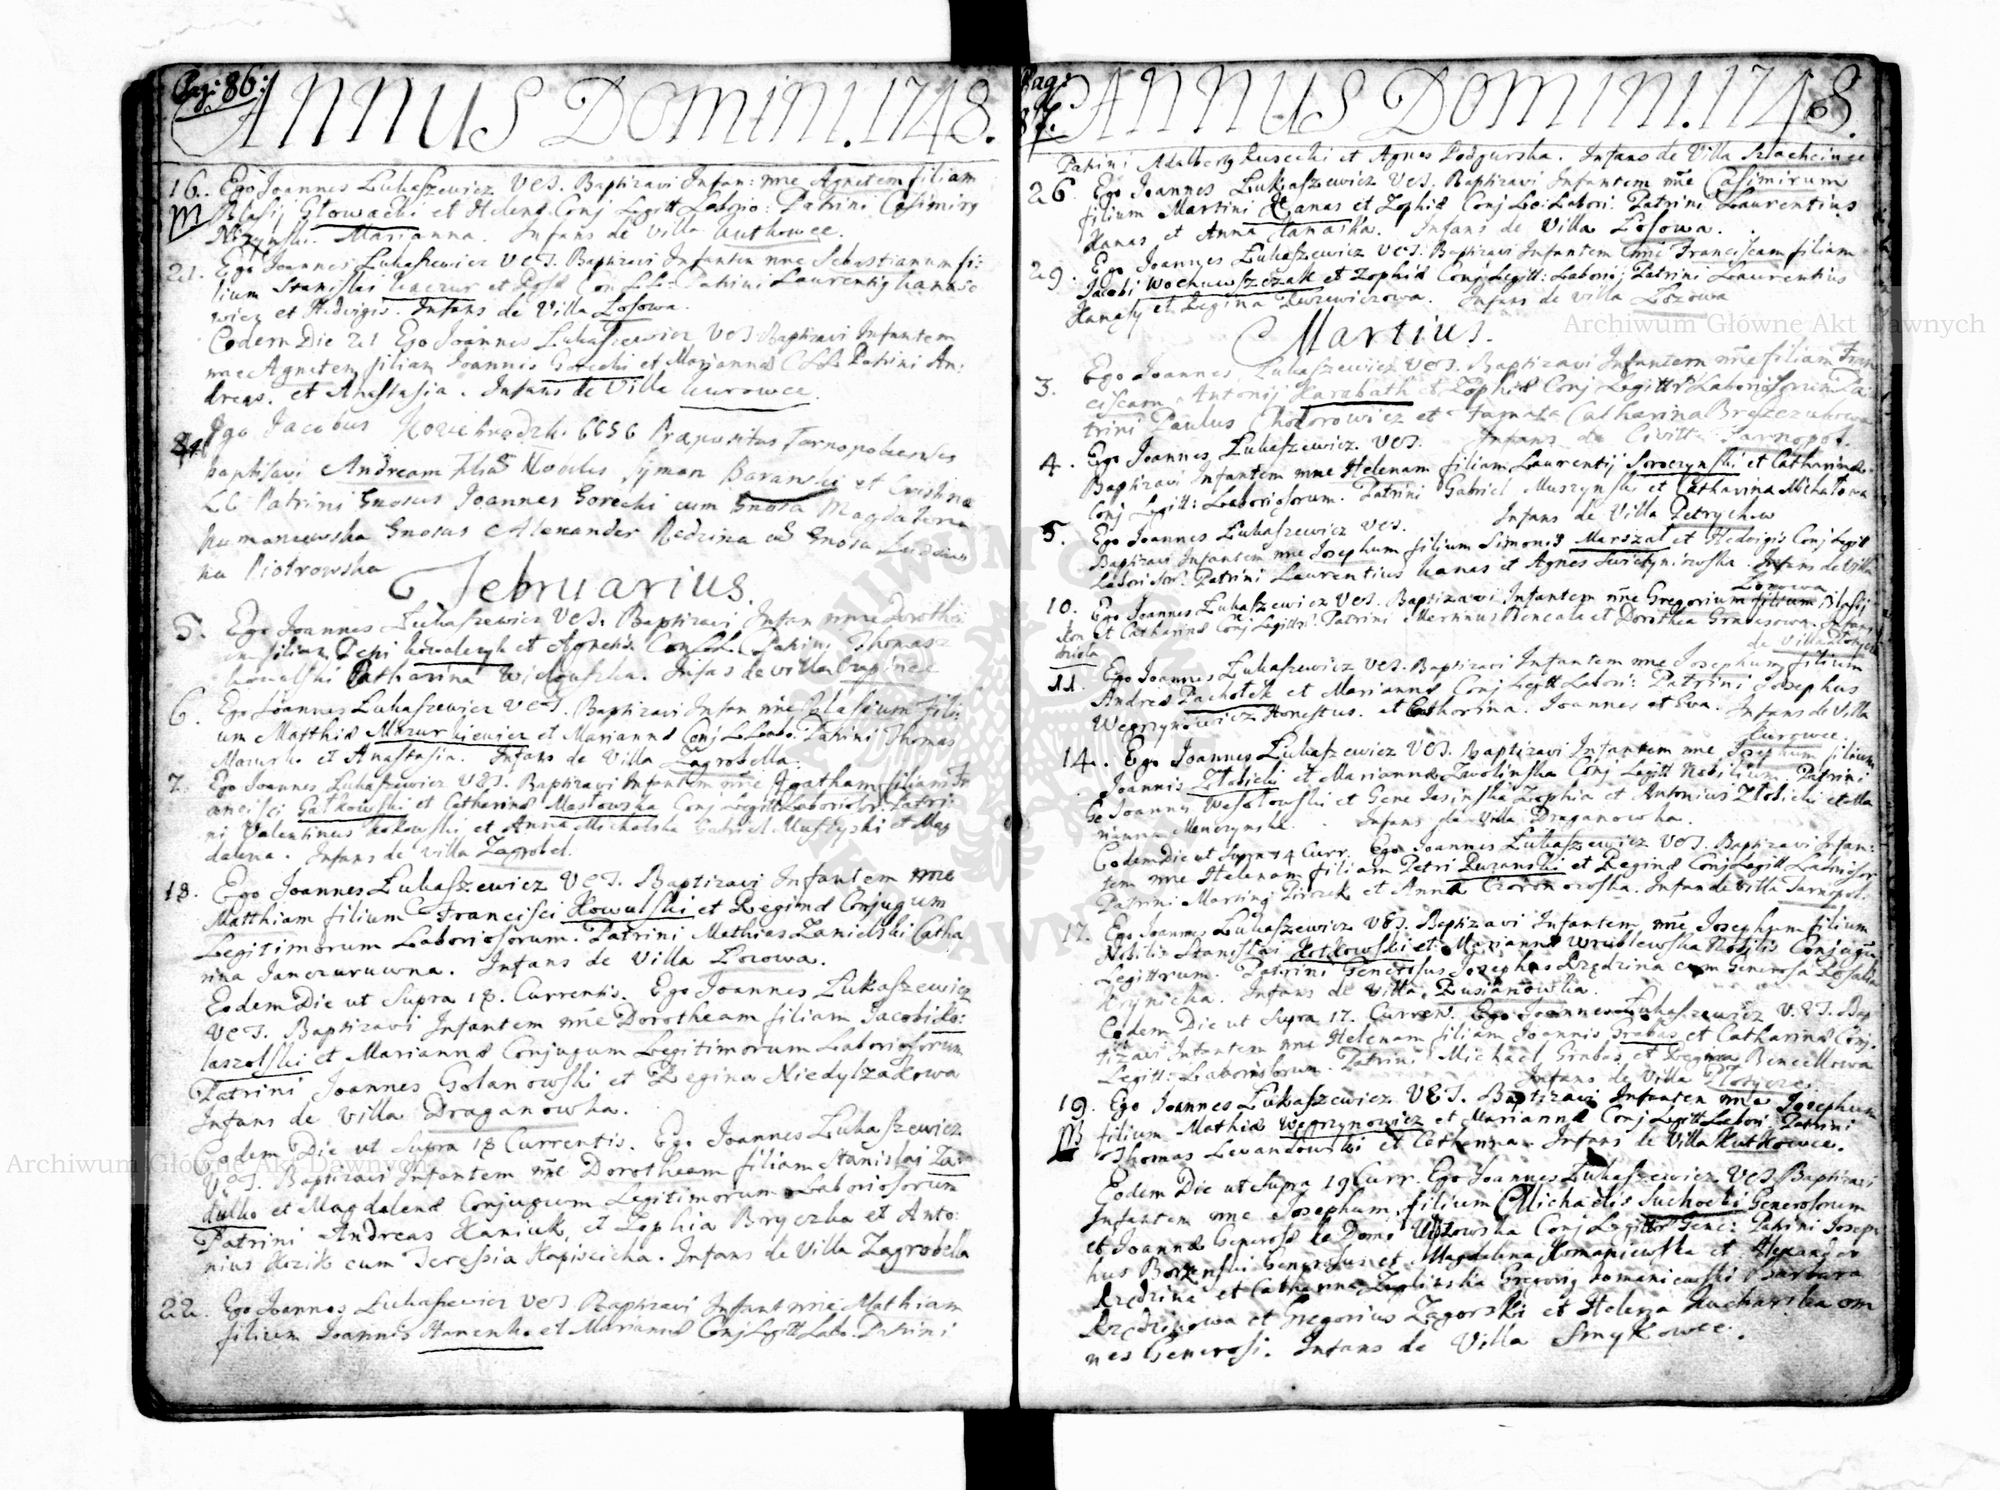 Pag: 86:
ANNUS DOMINI. 1748.
16. Ego Joannes Lukaszewicz VCS. Baptizavi Infan: nne Agnetem filiam
Blasij Głowacki et Helenæ Conj Legitt Laborio: Patrini Casimirg
Nizynski. Marianna. Infans de Villa Kutkowce.
21. Ego Joannes Lukaszewicz VCS. Baptizavi Infantem nne Sebastianum fi:
lium Stanislai Kaczur et Rosæ Con LL: Patrini Laurentig Kanase
wicz et Hedvigis. Infans de Villa Łosowa.
Eodem Die 21 Ego Joannes Lukasiewicz VCS Baptizavi Infantem
nne Agnetem filiam Joannis Gorecki et Mariannæ CLL Patrini An:
dreas. et Anastasia. Infans de Villa Kurowce.
Ego Jacobus Præpositus Tarnopoliensis
baptisavi Andream Nobilis Symon Baranski et Cristinæ
LC Patrini Gnosus Joannes Gorecki cum Gnosa Magdalena
Humaniewska Gnosus Alexander Redzina
Piotrowska
Februarius.
5. Ego Joannes Lukaszewicz VCS. Baptizavi Infan nne Dorothe
am filiam Kowalczyk et Agnetis Con LL Patrini Thomas
Kowalski Catharina Infas de villa Czapince
6. Ego Joannes Lukaszewicz VCS. Baptizavi Infan nne Blasium fili:
um Matthiæ Mazurkiewicz et Mariannæ Conj L Labo: Patrini Thomas
et Anastasia. Infans de Villa Zagrobella.
7. Ego Joannes Lukaszewicz VCS. Baptizavi Infantem nne Agatham filiam Fr
ancisci Gutkowski et Catharinæ Masłowska Conj Legitt Laborios: Patri:
ni Valentinus et Anna Michalska Gabriel Muszyski et Mag
dalena. Infans de villa Zagrobel.
18. Ego Joannes Lukaszewicz VCS. Baptizavi Infantem nne
Matthiam filium Francisci Kowalski et Reginæ Conjugum
Legitimorum Laboriosorum. Patrini Mathias Zanielski Catha
rina Janczurowna. Infans de Villa Łozowa.
Eodem Die ut Supra 18. Currentis. Ego Joannes Lukaszewicz
VCS. Baptizavi Infantem nne Dorotheam filiam Jacobi Ko:
laszelski et Mariannæ Conjugum Legitimorum Laboriosorum
Patrini Joannes Golanowski et Regina Niedylzadowa
Infans de Villa Draganowka.
Eodem Die ut Supra 18 Currentis. Ego Joannes Lukaszewicz
VCS. Baptizavi Infantem nne Dorotheam filiam Stanislai Za:
dulko et Magdalenæ Conjugum Legitimorum Laboriosorum
Patrini Andreas Kaniuk, et Zophia Bryczka et Anto:
nius Kozik cum Teressia Kapiscicha. Infans de Villa Zagrobella
22. Ego Joannes Lukaszewicz VCS. Baptizavi Infant nne Mathiam
filium Joannis Hanenko et Mariannæ Conj Legitt Labo. Patrini
Pag: 87.
ANNUS DOMINI. 1748.
Patrini Adalberg Rusecki et Agnes Podgurska. Infans de Villa Szlacheince
26. Ego Joannes Lukaszewicz VCS. Baptizavi Infantem nne Casimirum
filium Martini Kanas et Zophiæ Conj Le: Labori: Patrini Laurentius
Kanas et Anna Infans de Villa Łosowa.
29. Ego Joannes Lukaszewicz VCS. Baptizavi Infantem nne Franciscam filiam
Jacobi et Zophiæ Conj Legitt: Laborij Patrini Laurentius
et Regina Infans de villa Łozowa
Martius.
3. Ego Joannes Lukaszewicz VCS. Baptizavi Infantem nne filiam Fran
ciscam Antonij Karabath et Zophiæ Conj Legitt Laboriosorum Pa:
trini Paulus Chodorowicz et Catharina Brzezukowa
Infans de Civitt Tarnopol.
4. Ego Joannes Lukaszewicz. VCS.
Baptizavi Infantem nne Helenam filiam Laurentij Soroczynski et Catharinæ
Conj Legitt: Laboriosorum. Patrini Gabriel Muszynski et Catharina Michałowa
Infans de Villa Petrykow
5. Ego Joannes Lukaszewicz VCS.
Baptizavi Infantem nne Josephum filium Simonis Marszal et Hedvigis Conj Legit
Laborior. Patrini Laurentius Kanas et Agnes Infans de Villa
Łozowa.
10. Ego Joannes Lukaszewicz VCS. Baptizavi Infantem nne Gregorium filium Blasij
Kon et Catharinæ Conj Legitt: Patrini Martinus Bencala et Dorothea Infans
dziela de Villa
11. Ego Joannes Lukaszewicz VCS. Baptizavi Infantem nne Josephum filium
Andreæ Pachołek et Mariannæ Conj Legitt Labori: Patrini Josephus
Wegrzynowicz Honestus. et Catharina. Joannes et Eva. Infans de Villa
Kurowce.
14. Ego Joannes Lukaszewicz VCS. Baptizavi Infantem nne Josephum filium
Joannis Złobicki et Mariannæ Zwolinska Conj Legitt Nobilium. Patrini
Ge Joannes Wesołowski et Gene Jasinska Zophia et Antonius Złobicki et Ma
rianna Menczynska. Infans de Villa Draganowka.
Eodem Die ut Supra 14 Curr. Ego Joannes Lukaszewicz VCS. Baptizavi Infan:
tem nne Helenam filiam Petri Buranski et Reginæ Conj Legitt Laborior
Patrini Martinq Piorek et Anna Infan de Villa Tarnopol.
17. Ego Joannes Lukaszewicz VCS. Baptizavi Infantem nne Josephum filium
Nobilis Stanislai Kotkowski et Mariannæ Wrublewska Nobilis Conjugu
Legittorum. Patrini Generosus Josephus Rzędzina cum Generosa Rosalia
Krynicka. Infans de Villa Rusianowka.
Eodem Die ut Supra 17. Curren. Ego Joannes Lukaszewicz V.C.S. Bap
tizavi Infantem nne Helenam filiam Joannis Grabas et Catharinæ Conj.
Legitt: Laboriosorum. Patrini Michael Grabas et Regina Bencellowa
Infans de Villa
19. Ego Joannes Lukaszewicz. VCS. Baptizavi Infantem nne Josephum
filium Mathiæ Wegrzynowicz et Mariannæ Conj Legitt Labori. Patrini
Thomas Levandowski et Catharina. Infans de Villa Kutkowce.
Eodem Die ut Supra 19 Curr. Ego Joannes Lukaszewicz VCS Baptizavi
Infantem nne Josephum filium Michaelis Suchocki Generosorum
et Joannæ Generosæ de Domo Conj Legittor Gene: Patrini Josep
hus Generosus et Magdalena Komaniewska et Alexander
Rzędzina et Catharina Gregorig Komaniewski Barbara
Rzędzinowa et Gregorius Zagorski et Helena Kucharska om
nes Generosi. Infans de Villa Smykowce.
Archiwum Główne Akt Dawnych
Archiwum Główne Akt Dawnych
ARCHIWUM GŁÓWNE AKT DAWNYCH